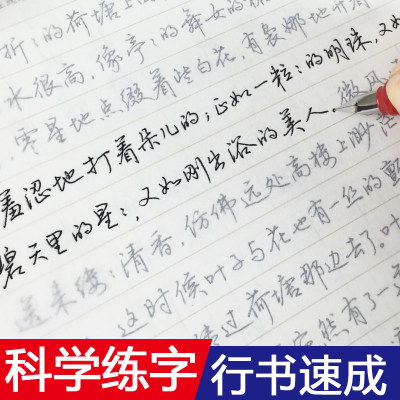 折：的荷塘上
水很高，像亭：的舞女的裙
零星地点缀着些白花，有袅娜地开
羞涩地打着朵儿的；正如一粒：的明珠，又如
碧天里的星：，又如刚出浴的美人。微风
送来缕：清香，仿佛远处高楼上渺茫
这时候叶子与花也有一丝的颤
过荷塘那边去了。叶
宛然有了一
科学练字 行书速成